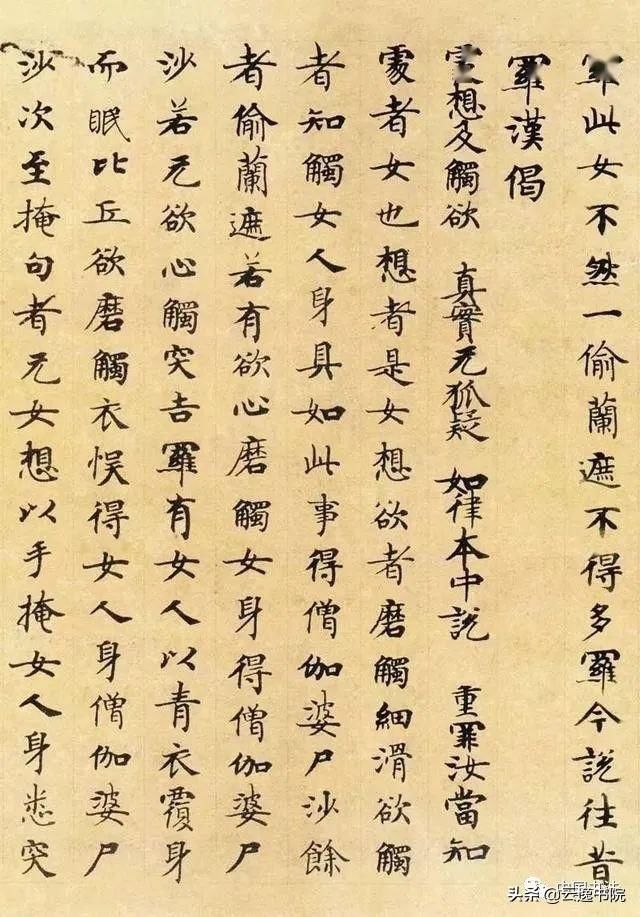 羅此女不然一偷蘭遮不得多羅今說往昔
羅漢偈
想及觸欲 真實无狐疑 如律本中說 重罪汝當知
者女也想者是女想欲者磨觸細滑欲觸
者知觸女人身具如此事得僧伽婆尸沙餘
者偷蘭遮若有欲心磨觸女身得僧伽婆尸
沙若无欲心觸突吉羅有女人以青衣覆身
而眠比丘欲磨觸衣悮得女人身僧伽婆尸
沙次至掩句者无女想以手掩女人身悉突
中国书法
头条 @云书院